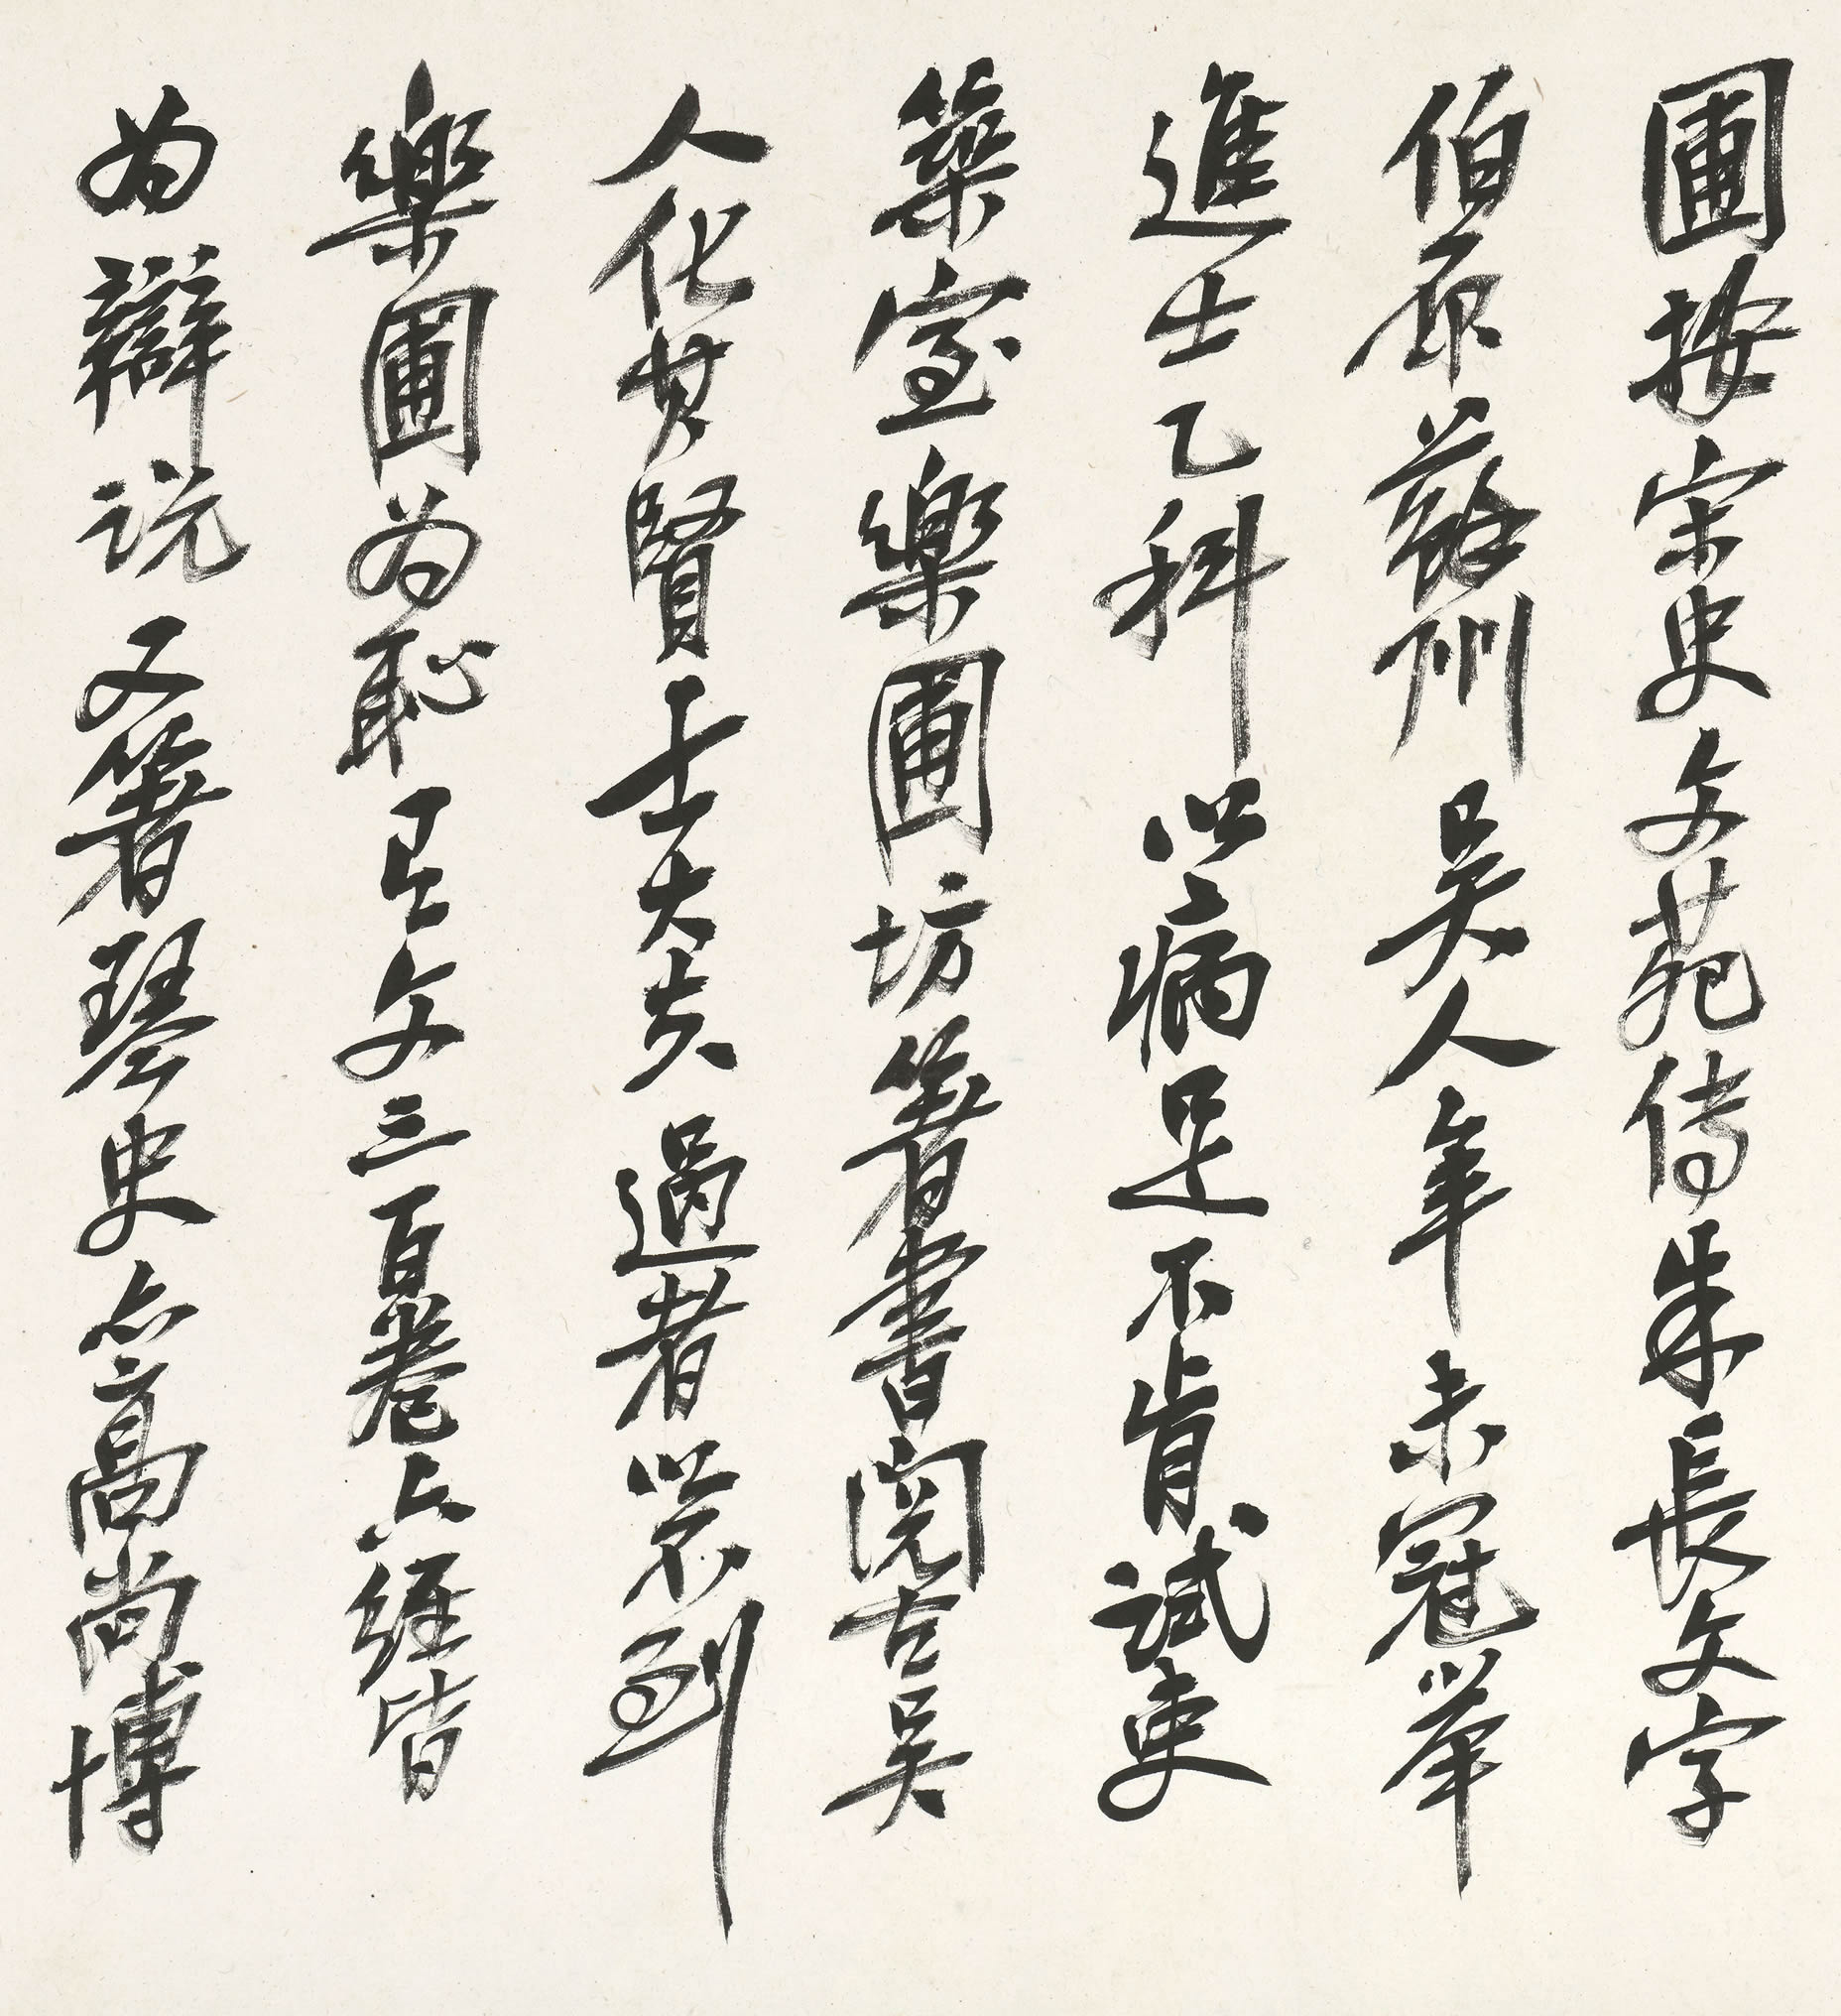 圃按宋史文苑傳朱長文字
伯原蘇州吳人年未冠舉
進士乙科以病足不肯試吏
築室樂圃坊著書閱古吳
人化其賢士大夫過者以不到
樂圃為恥有文三百卷六經皆
為辯説又著琴史亦高尚博